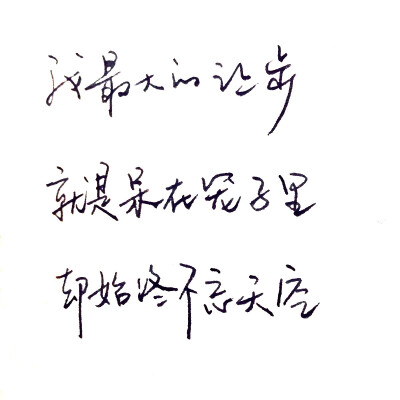 我最大的让步
就是呆在笼子里
却始终不忘天空